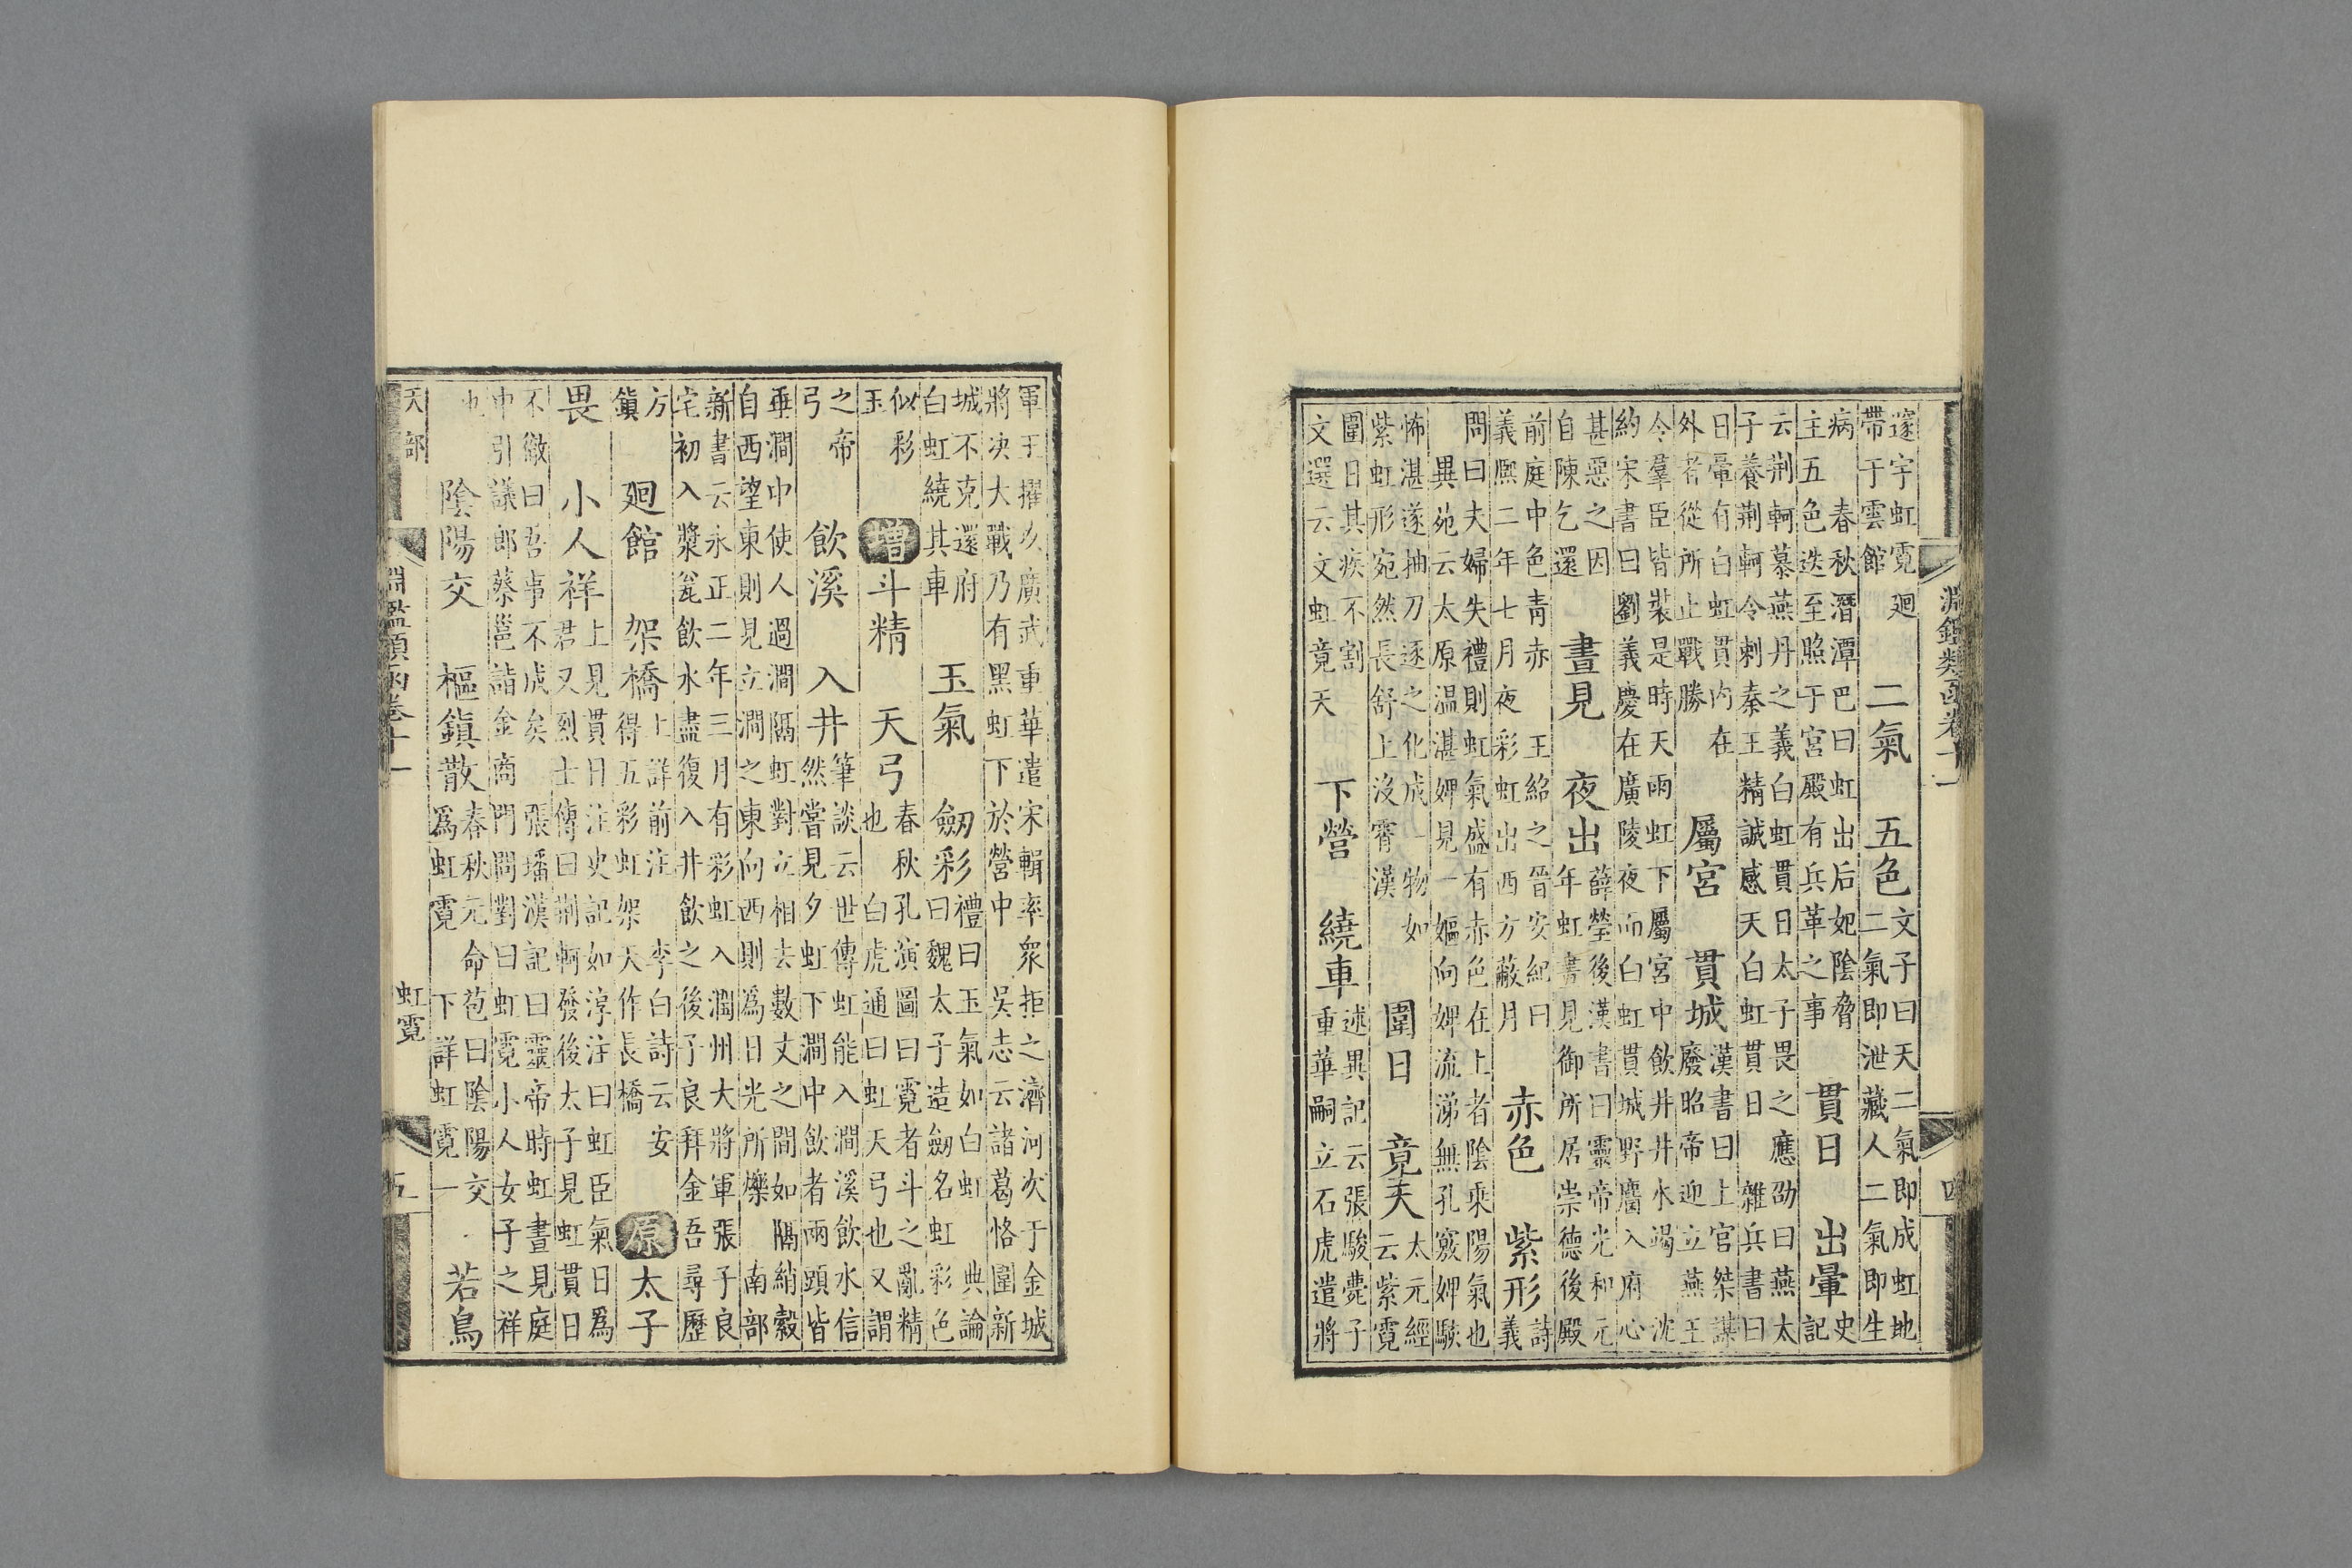 淵鑑類函卷十一　四
遂宇虹霓　廻
帶于雲館
二氣　五色
文子曰天二氣即成虹地
二氣即泄藏人二氣即生
病　春秋潛潭巴曰虹出后妃陰脅
主五色迭至照于宮殿有兵革之事
貫日　出暈
史
記
云荆軻慕燕丹之義白虹貫日太子畏之應劭曰燕太
子養荆軻令刺秦王精誠感天白虹貫日　雜兵書曰
日暈有白虹貫内在
外者從所止戰勝
屬宮　貫城
漢書曰上官桀謀
廢昭帝迎立燕王
令羣臣皆裝是時天雨虹下屬宮中飲井井水竭　沈
約宋書曰劉義慶在廣陵夜而白虹貫城野麕入府心
甚惡之因
自陳乞還
晝見　夜出
薛瑩後漢書曰靈帝光和元
年虹晝見御所居崇德後殿
前庭中色青赤　王紹之晉安紀曰
義熙二年七月夜彩虹出西方蔽月
赤色　紫形
詩
義
問曰夫婦失禮則虹氣盛有赤色在上者陰乘陽氣也
異苑云太原温湛婢見一嫗向婢流涕無孔竅婢駭
怖湛遂抽刀逐之化成一物如
紫虹形宛然長舒上没霄漢
圍日　竟天
太元經
云紫霓
圍日其疾不割
文選云文虹竟天
下營　繞車
述異記云張駿薨子
重華嗣立石虎遣將
軍王擢攻廣武重華遣宋輯率衆拒之濟河次于金城
將决大戰乃有黑虹下於營中　吳志云諸葛恪圍新
城不克還府
白虹繞其車
玉氣　劒彩
禮曰玉氣如白虹　典論
曰魏太子造劒名虹彩色
似彩
玉
增　斗精　天弓
春秋孔演圖曰霓者斗之亂精
也　白虎通曰虹天弓也又謂
之帝
弓
飲溪　入井
筆談云世傳虹能入澗溪飲水信
然嘗見夕虹下澗中飲者兩頭皆
垂澗中使人過澗隔虹對立相去數丈之間如隔綃縠
自西望東則見立澗之東向西則爲日光所爍　南部
新書云永正二年三月有彩虹入潤州大將軍張子良
宅初入漿瓮飲水盡復入井飲之後子良拜金吾尋歷
方
鎭
廻館　架橋
上詳前注　李白詩云安
得五彩虹架天作長橋
原　太子
畏　小人祥
上見貫日注史記如淳注曰虹臣氣日爲
君又烈士傳曰荆軻發後太子見虹貫日
不徹曰吾事不成矣　張璠漢記曰靈帝時虹晝見庭
中引議郎蔡邕詣金商門問對曰虹霓小人女子之祥
也
陰陽交　樞鎭散
春秋元命苞曰陰陽交
爲虹霓　下詳虹霓一
若鳥
天部　淵鑑類函卷十一　虹霓　五